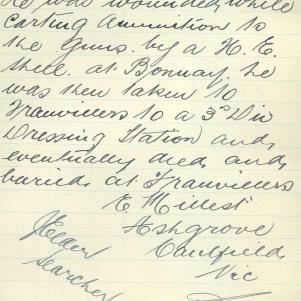 he was wounded while
carting ammunition to
the guns. by a H. E.
shell. at Bonnay. he
was then taken to
Franvillers to a 3rd Div
Dressing Station and,
eventually died and
buried at Franvillers
E Millest
Ashgrove
Caulfield
Vic
Searcher